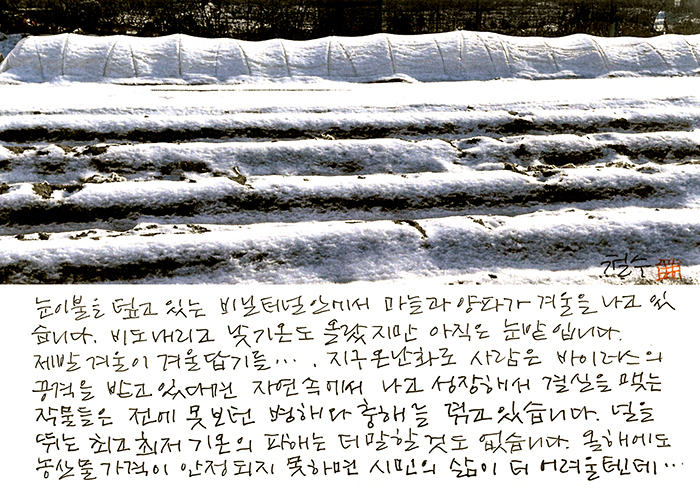 철수
눈이불을 덮고 있는 비닐터널 안에서 마늘과 양파가 겨울을 나고 있
습니다. 비도내리고 낮기온도 올랐지만 아직은 눈밭입니다.
제발 겨울이 겨울답기를…. 지구온난화로 사람은 바이러스의
공격을 받고 있다면 자연속에서 나고 성장해서 결실을 맺는
작물들은 전에 못보던 병해와 충해를 겪고 있습니다. 널을
뛰는 최고 최저 기온의 피해는 더 말할 것도 없습니다. 올해에도
농산물 가격이 안정되지 못하면 시민의 삶이 더 어려울텐데…